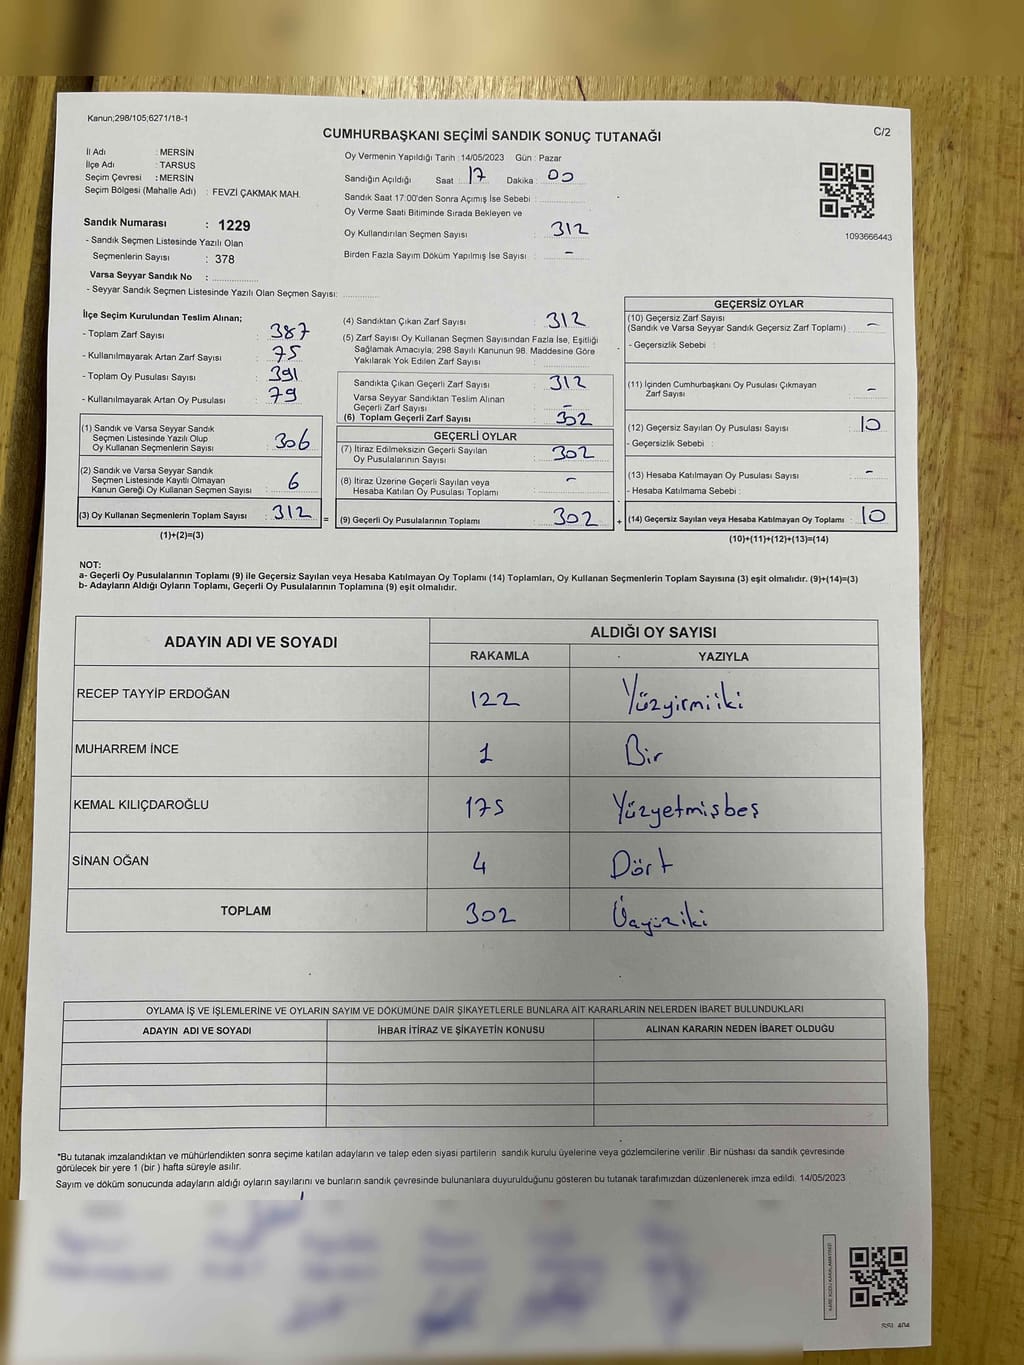 Kanun;298/105;6271/18-1
CUMHURBAŞKANI SEÇİMİ SANDIK SONUÇ TUTANAĞI
C/2
İl Adı : MERSİN
İlçe Adı : TARSUS
Seçim Çevresi : MERSİN
Seçim Bölgesi (Mahalle Adı) : FEVZİ ÇAKMAK MAH.
Sandık Numarası : 1229
- Sandık Seçmen Listesinde Yazılı Olan
Seçmenlerin Sayısı : 378
Varsa Seyyar Sandık No :
- Seyyar Sandık Seçmen Listesinde Yazılı Olan Seçmen Sayısı:
Oy Vermenin Yapıldığı Tarih : 14/05/2023 Gün : Pazar
Sandığın Açıldığı Saat : 17 Dakika : 00
Sandık Saat 17:00'den Sonra Açımış İse Sebebi :
Oy Verme Saati Bitiminde Sırada Bekleyen ve
Oy Kullandırılan Seçmen Sayısı : 312
Birden Fazla Sayım Döküm Yapılmış İse Sayısı : -
1093666443
İlçe Seçim Kurulundan Teslim Alınan;
- Toplam Zarf Sayısı : 387
- Kullanılmayarak Artan Zarf Sayısı : 75
- Toplam Oy Pusulası Sayısı : 391
- Kullanılmayarak Artan Oy Pusulası : 79
(1) Sandık ve Varsa Seyyar Sandık
Seçmen Listesinde Yazılı Olup
Oy Kullanan Seçmenlerin Sayısı : 306
(2) Sandık ve Varsa Seyyar Sandık
Seçmen Listesinde Kayıtlı Olmayan
Kanun Gereği Oy Kullanan Seçmen Sayısı : 6
(3) Oy Kullanan Seçmenlerin Toplam Sayısı : 312 =
(1)+(2)=(3)
(4) Sandıktan Çıkan Zarf Sayısı : 312
(5) Zarf Sayısı Oy Kullanan Seçmen Sayısından Fazla İse, Eşitliği
Sağlamak Amacıyla, 298 Sayılı Kanunun 98. Maddesine Göre
Yakılarak Yok Edilen Zarf Sayısı :
Sandıkta Çıkan Geçerli Zarf Sayısı : 312
Varsa Seyyar Sandıktan Teslim Alınan
Geçerli Zarf Sayısı : -
(6) Toplam Geçerli Zarf Sayısı : 302
GEÇERLİ OYLAR
(7) İtiraz Edilmeksizin Geçerli Sayılan
Oy Pusulalarının Sayısı : 302
(8) İtiraz Üzerine Geçerli Sayılan veya
Hesaba Katılan Oy Pusulası Toplamı : -
(9) Geçerli Oy Pusulalarının Toplamı : 302 +
GEÇERSİZ OYLAR
(10) Geçersiz Zarf Sayısı
(Sandık ve Varsa Seyyar Sandık Geçersiz Zarf Toplamı) : -
- Geçersizlik Sebebi :
(11) İçinden Cumhurbaşkanı Oy Pusulası Çıkmayan
Zarf Sayısı : -
(12) Geçersiz Sayılan Oy Pusulası Sayısı : 10
- Geçersizlik Sebebi :
(13) Hesaba Katılmayan Oy Pusulası Sayısı : -
- Hesaba Katılmama Sebebi :
(14) Geçersiz Sayılan veya Hesaba Katılmayan Oy Toplamı : 10
(10)+(11)+(12)+(13)=(14)
NOT:
a- Geçerli Oy Pusulalarının Toplamı (9) ile Geçersiz Sayılan veya Hesaba Katılmayan Oy Toplamı (14) Toplamları, Oy Kullanan Seçmenlerin Toplam Sayısına (3) eşit olmalıdır. (9)+(14)=(3)
b- Adayların Aldığı Oyların Toplamı, Geçerli Oy Pusulalarının Toplamına (9) eşit olmalıdır.
ADAYIN ADI VE SOYADI ALDIĞI OY SAYISI
RAKAMLA YAZIYLA
RECEP TAYYİP ERDOĞAN 122 Yüzyirmiiki
MUHARREM İNCE 1 Bir
KEMAL KILIÇDAROĞLU 175 Yüzyetmişbeş
SİNAN OĞAN 4 Dört
TOPLAM 302 Üçyüziki
OYLAMA İŞ VE İŞLEMLERİNE VE OYLARIN SAYIM VE DÖKÜMÜNE DAİR ŞİKAYETLERLE BUNLARA AİT KARARLARIN NELERDEN İBARET BULUNDUKLARI
ADAYIN ADI VE SOYADI İHBAR İTİRAZ VE ŞİKAYETİN KONUSU ALINAN KARARIN NEDEN İBARET OLDUĞU
*Bu tutanak imzalandıktan ve mühürlendikten sonra seçime katılan adayların ve talep eden siyasi partilerin sandık kurulu üyelerine veya gözlemcilerine verilir .Bir nüshası da sandık çevresinde
görülecek bir yere 1 (bir ) hafta süreyle asılır.
Sayım ve döküm sonucunda adayların aldığı oyların sayılarını ve bunların sandık çevresinde bulunanlara duyurulduğunu gösteren bu tutanak tarafımızdan düzenlenerek imza edildi. 14/05/2023